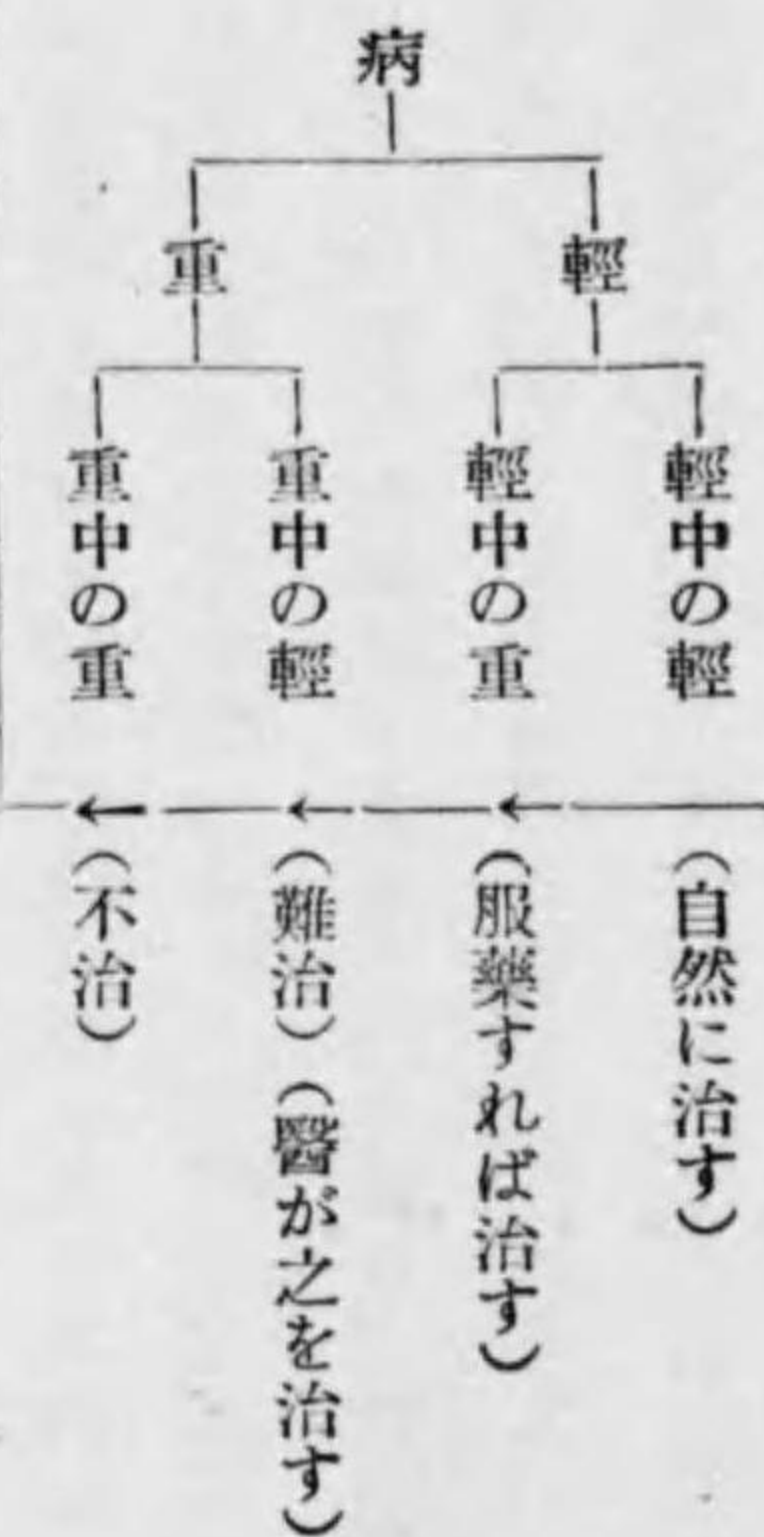 病
輕
重
輕中の輕
輕中の重
重中の輕
重中の重
(自然に治す)
(服藥すれば治す)
(難治)(醫が之を治す)
(不治)